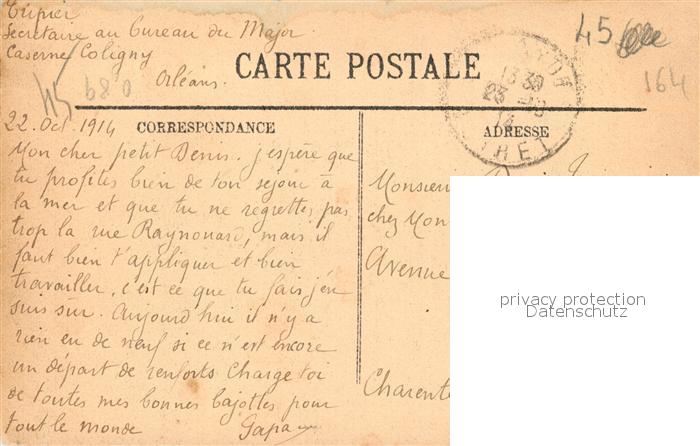 Tripier
Secrétaire au Bureau du Major
Caserne Coligny
Orléans.
CARTE POSTALE
45
164
45
680
13 30
23 -10
14
LOIRET
22. Oct. 1914
CORRESPONDANCE
ADRESSE
Mon cher petit Denis. j'espère que
tu profites bien de ton séjour à
la mer et que tu ne regrettes pas
trop la rue Raynouard, mais il
faut bien t'appliquer et bien
travailler, c'est ce que tu fais j'en
suis sûr. Aujourd'hui il n'y a
rien eu de neuf si ce n'est encore
un départ de renforts Charge toi
de toutes mes bonnes bajottes pour
tout le monde Papa
Monsieur
chez Mon
Avenue
Charente
privacy protection
Datenschutz